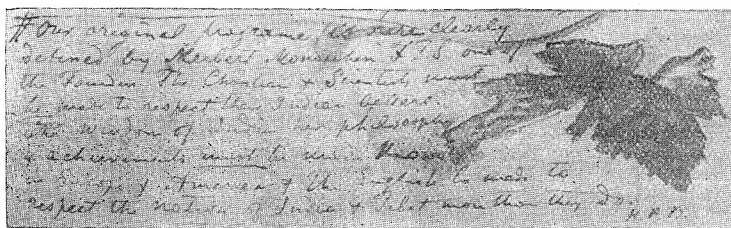 Our original programme is here clearly
defined by Herbert Monachesi F.T.S. one of
the Founders. The Christians & Scientists must
be made to respect their Indian betters.
The Wisdom of India, her philosophy
& achievements must be made known
in Europe & America & the English be made to
respect the natives of India & Tibet more than they do.
H.P.B.